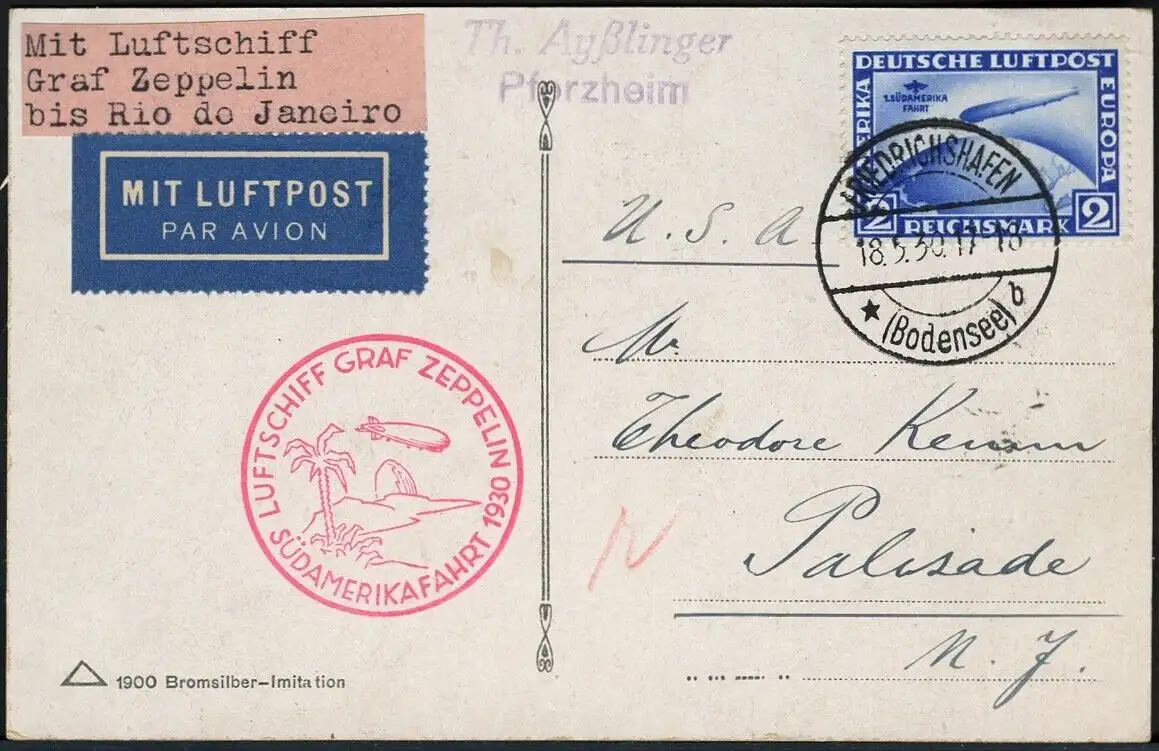 Mit Luftschiff
Graf Zeppelin
bis Rio de Janeiro
MIT LUFTPOST
PAR AVION
Th. Ayßlinger
Pforzheim
DEUTSCHE LUFTPOST
EUROPA
1.SÜDAMERIKA
FAHRT
2 REICHSMARK 2
FRIEDRICHSHAFEN
18.5.30.17-18
★ (Bodensee) b
U. S. A.
Mr.
Theodore
Palisade
N. J.
LUFTSCHIFF GRAF ZEPPELIN
SÜDAMERIKAFAHRT 1930
N
1900 Bromsilber-Imitation